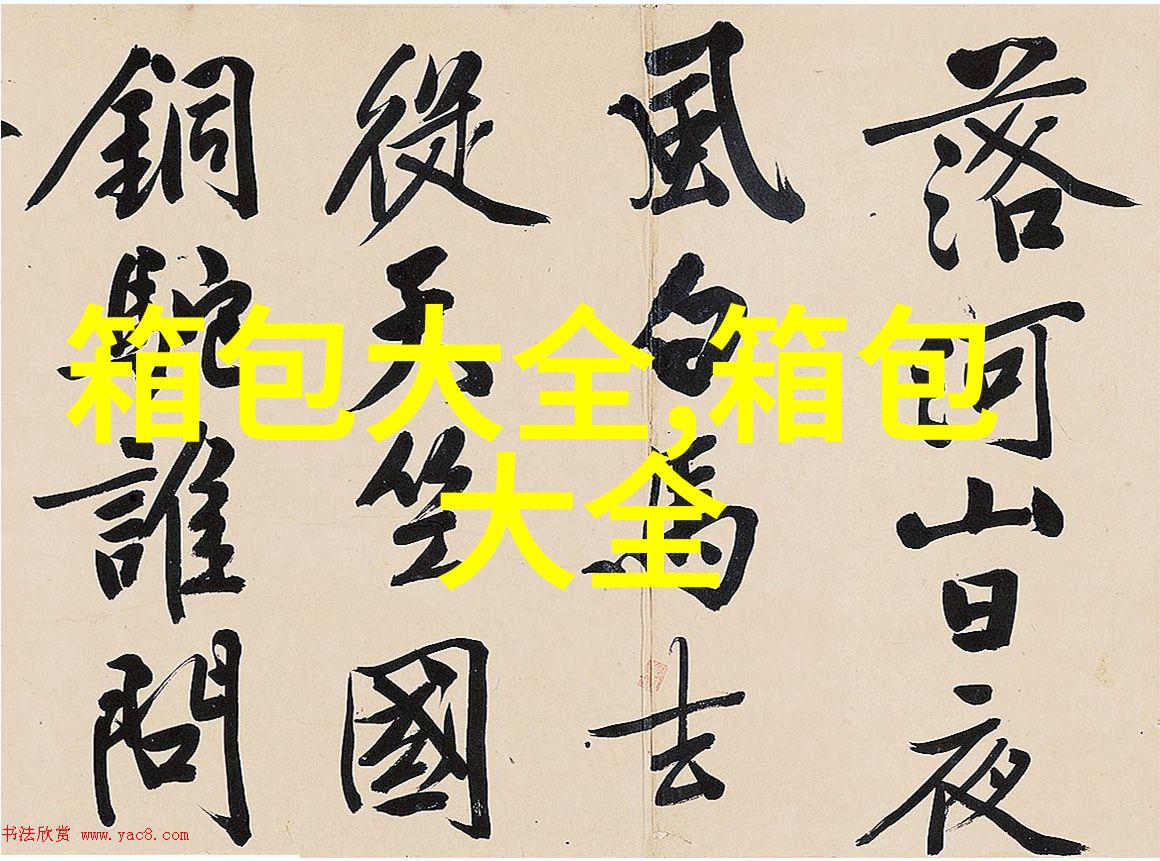 落河山日夜
風白馬去
從天竺國
銅駝誰問
箱包大全,箱包
大全
书法欣赏 www.yac8.com